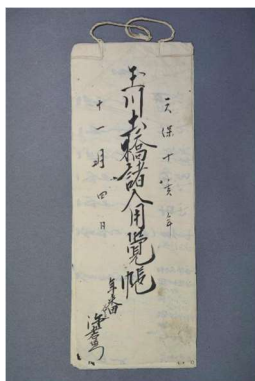 天保十亥年
玉川土橋諸入用覺帳
十一月四日
年番